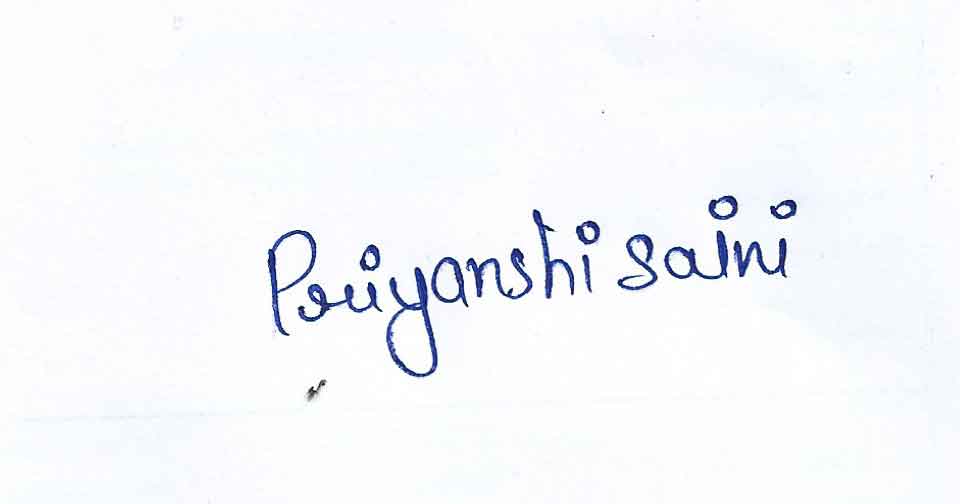 Priyanshi saini